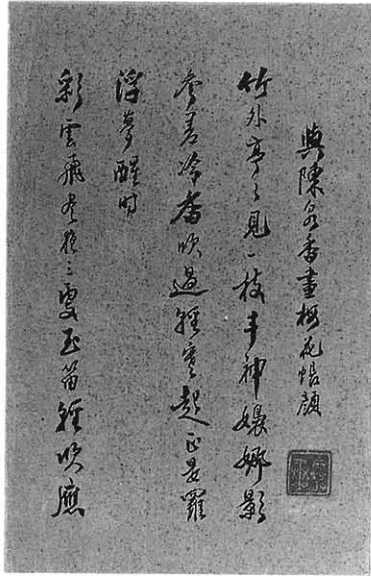 與陳泉香畫梅花帳顏
竹外亭々見一枝丰神嫋娜影
參差冷香吹過輕寒起正是羅
浮夢醒時
彩雲飛盡夜三更玉笛輕吹應